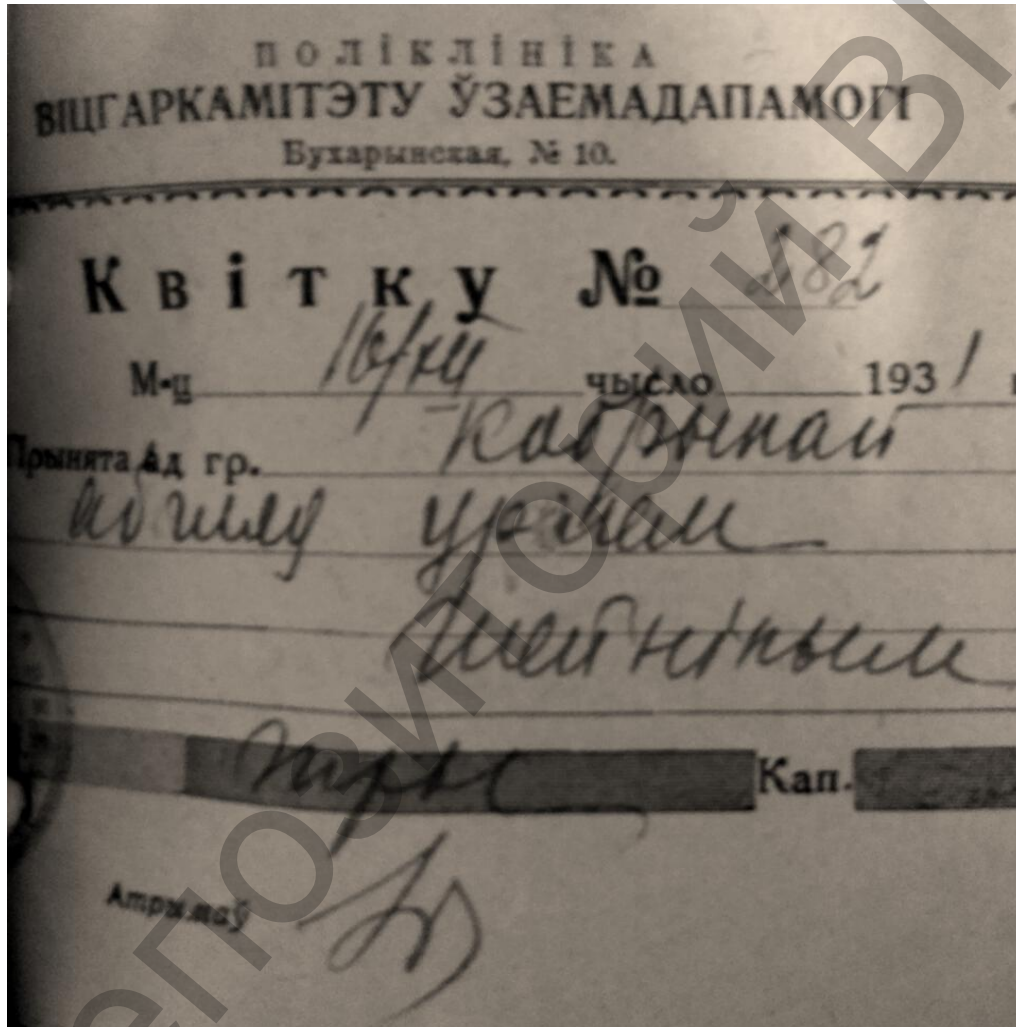 ПОЛІКЛІНІКА
ВІЦГАРКАМІТЭТУ ЎЗАЕМАДАПАМОГІ
Бухарынская, № 10.
Квітку № 882
М-ц 16/XII чысло 1931 г
Прынята ад гр. Кабрынай
агляд урачом
Шейнiным
тры Кап.
Атрымаў